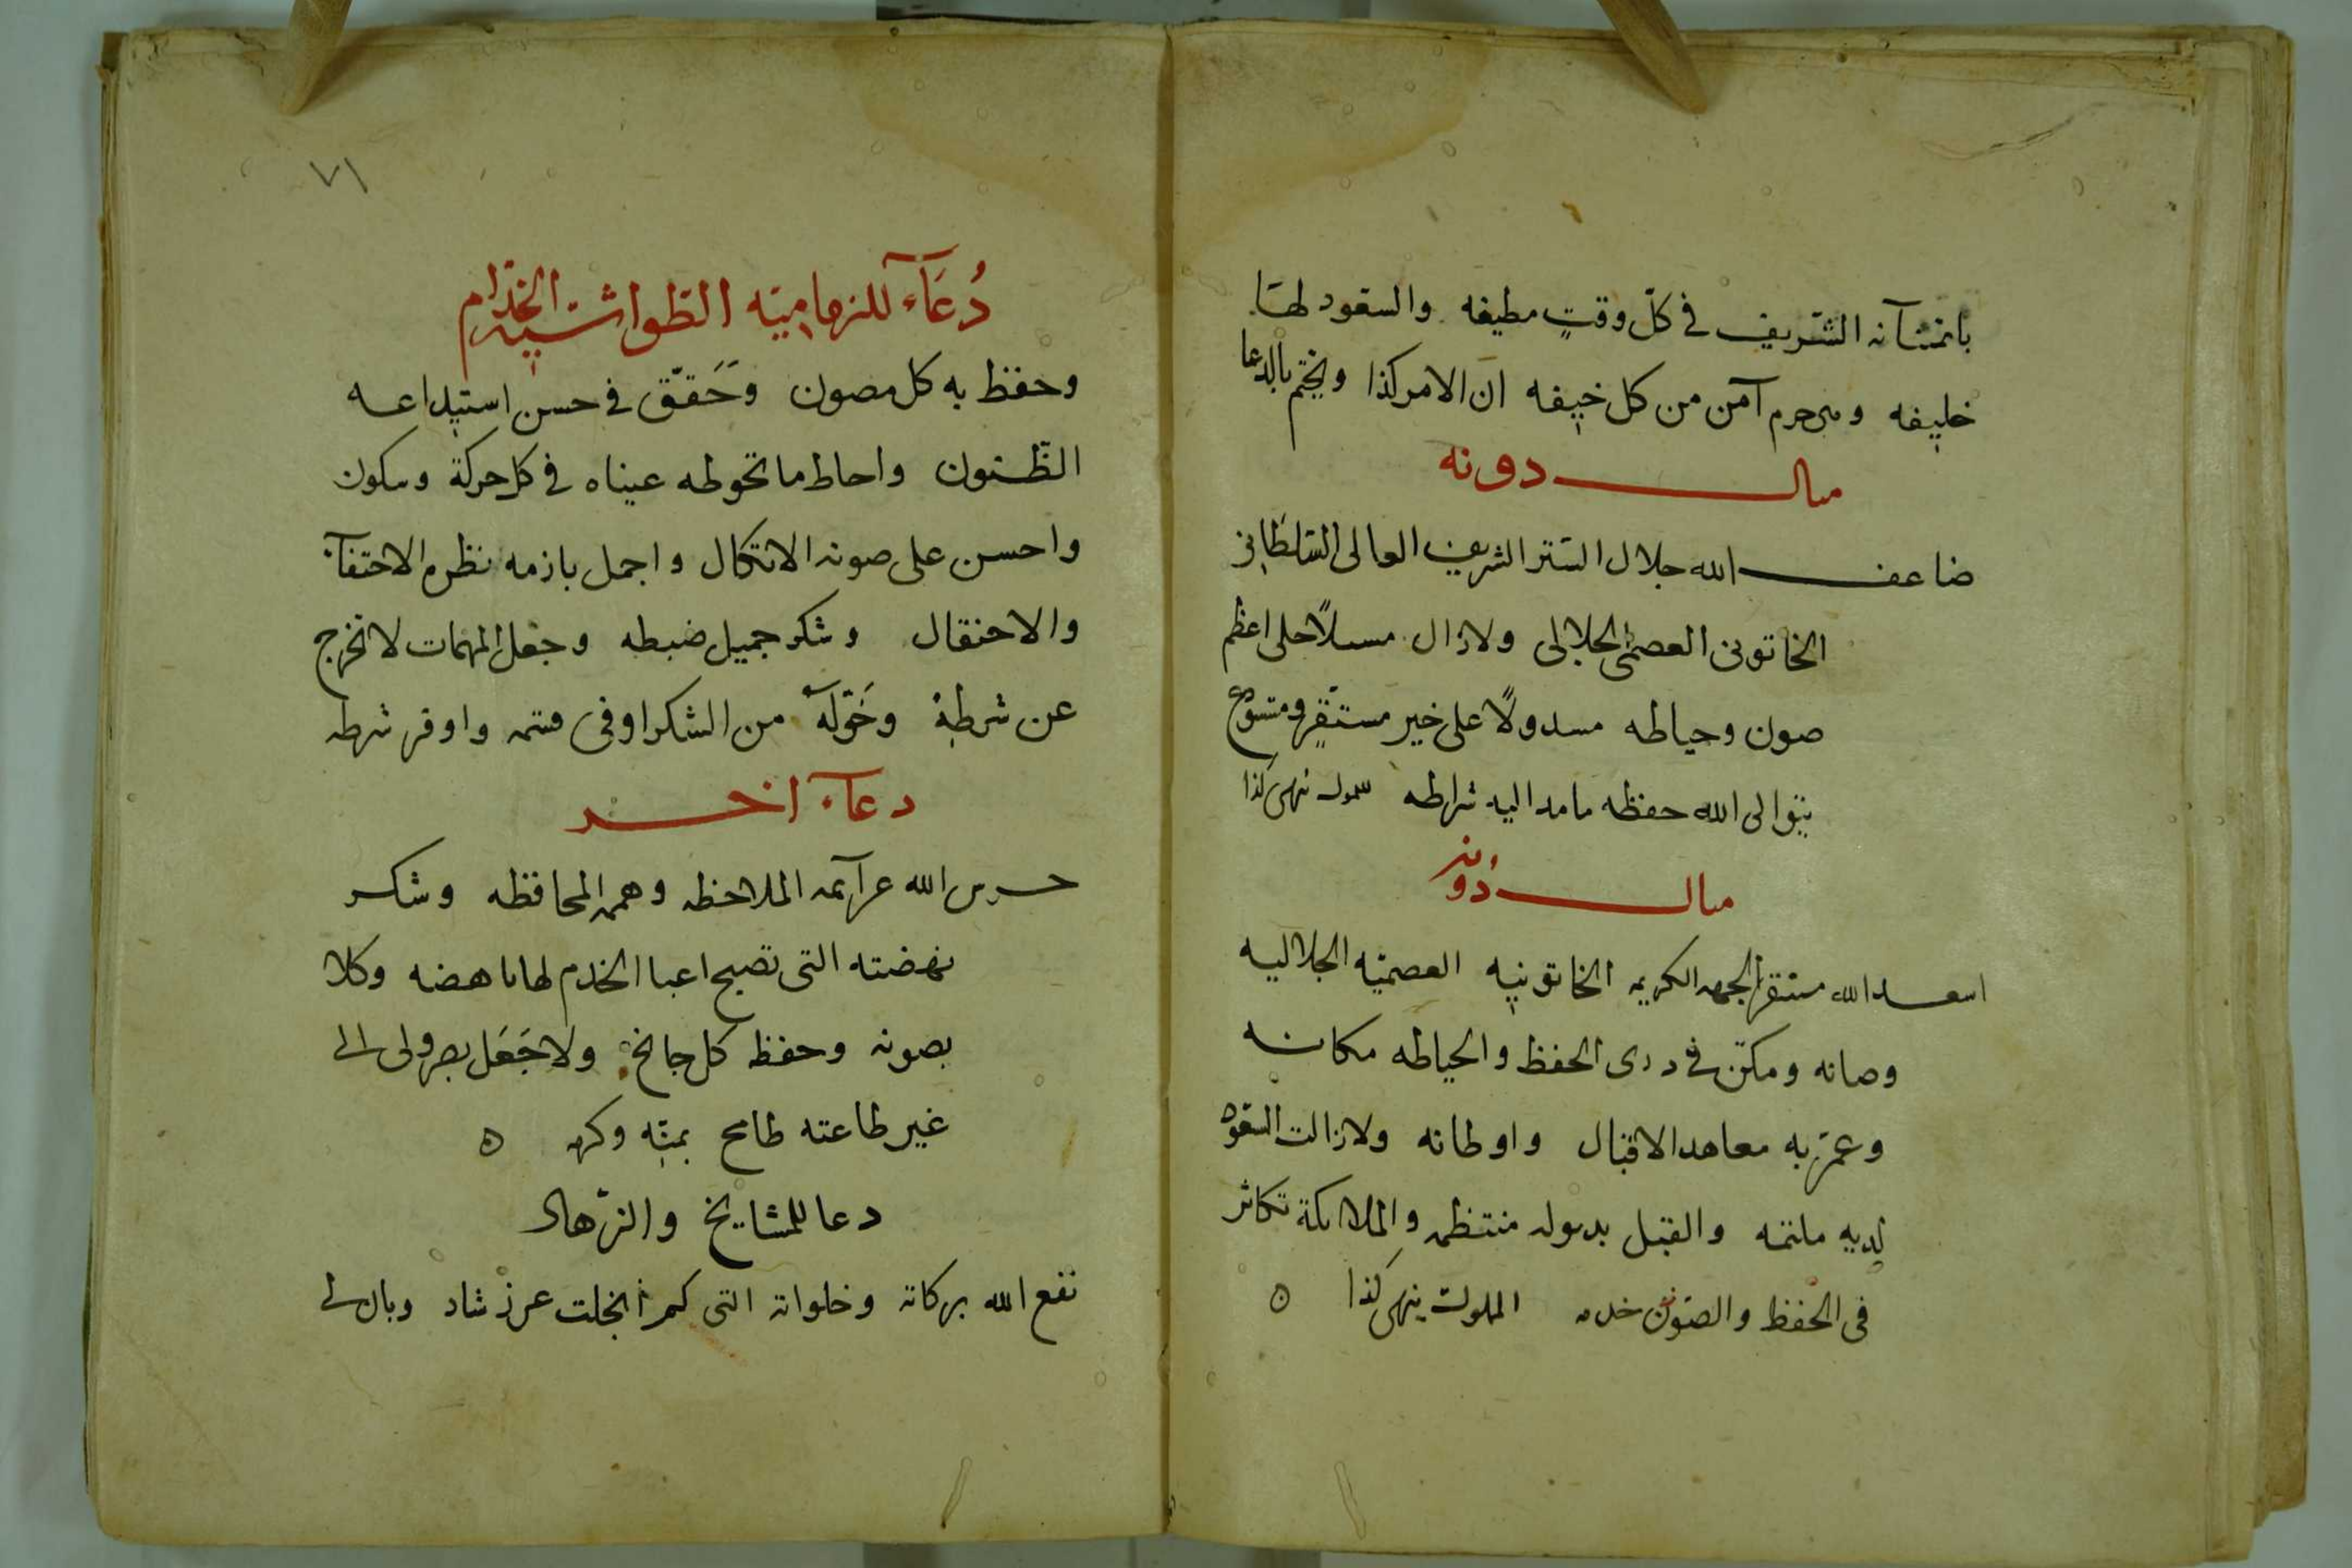 بانتمنائه الشريف في كلّ وقتٍ مطيفه والسعود لها
خليفه ومن حرم آمن من كل خيفه ان الامر كذا ويختم بالدعا
مثال دونه
ضاعف الله جلال الستر الشريف العالى السلطانى
الخاتونى العصمى الجلالى ولا زال مسبلاً على اعظم
صون وحياطه مسدولاً على خير مستقر ومتبوع
يتوالى الله حفظه ما مد اليه شراطه ينهى كذا
مثال دونه
اسعد الله مستقر الجهه الكريمه الخاتونيه العصميه الجلاليه
وصانه ومكن فى ذرى الحفظ والحياطه مكانه
وعمّر به معاهد الاقبال واوطانه ولا زالت السعود
لديه ملتئمه والقبل بدىوله منتظمه والملائكة تكاثر
فى الحفظ والصون خدمه المملوك ينهى كذا ٥
٧١
دُعَآء للزماميّه الطواشيه الخدّام
وحفظ به كل مصون وَحَقّق فى حسن استيداعه
الظّنون واحاط ما تحوطه عيناه فى كل حركة وسكون
واحسن على صونه الاتكال واجمل بازمه نظره الاحتفآء
والاحتفال وشكر جميل ضبطه وجعل المهمات لا تخرج
عن شرطه وخَوّله من الشكر اوفى قسمه واوفر شرطه
دعآء اخر
حرس الله عزآئمه الملاحظه وهممه المحافظه وشكر
نهضته التى تصبح اعبا الخدم لها ناهضه وكلا
بصونه وحفظه كل جانح ولا جَعَل بصر ولى الى
غير طاعته طامح بمنّه وكرمه ٥
دعا للمشايخ والزهاد
نفع الله ببركاته وخلواته التى كم انجلت عن رشاد